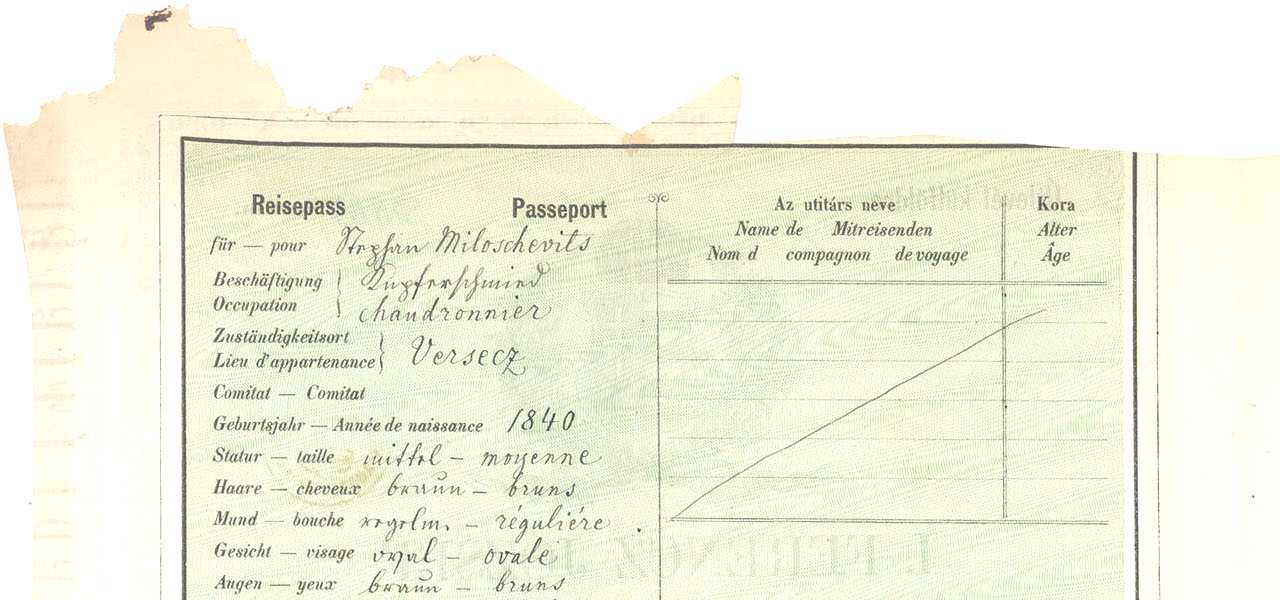 Reisepass Passeport
für — pour Stephan Miloschevits
Beschäftigung Kupferschmied
Occupation chaudronnier
Zuständigkeitsort
Lieu d'appartenance Versecz
Comitat — Comitat
Geburtsjahr — Année de naissance 1840
Statur — taille mittel — moyenne
Haare — cheveux braun — bruns
Mund — bouche regelm. — réguliére
Gesicht — visage oval — ovale
Augen — yeux braun — bruns
Az utitárs neve Kora
Name de Mitreisenden Alter
Nom d compagnon de voyage Âge